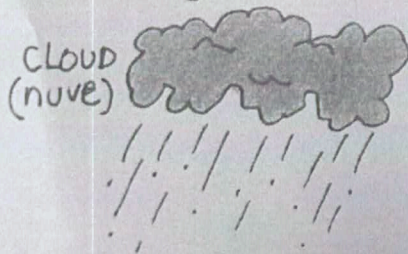 CLOUD
(nuve)